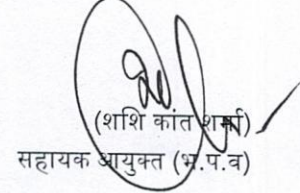 (शशि कांत शर्मा)
सहायक आयुक्त (भ.प.व)